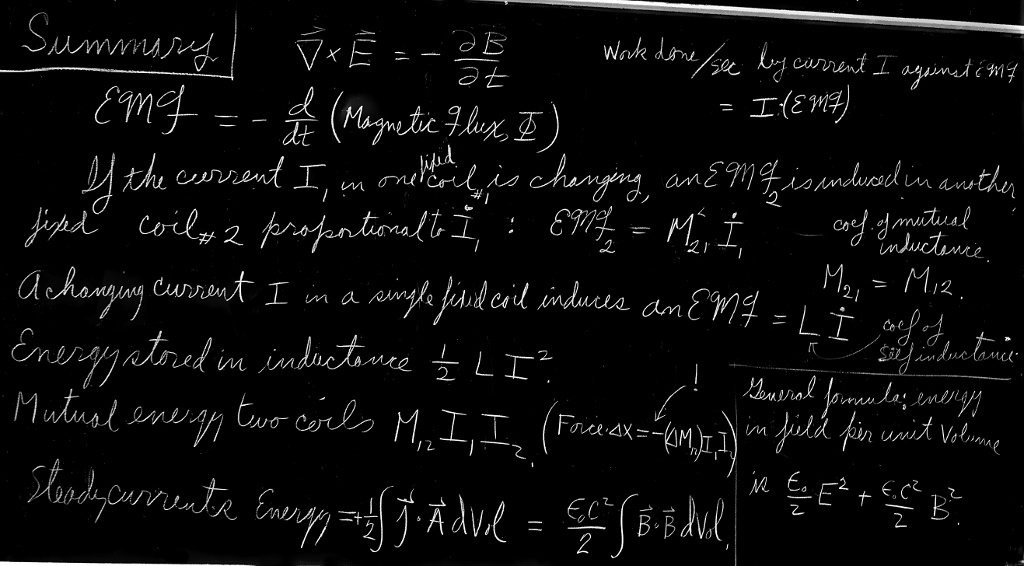 Summary
∇⃗ × E⃗ = − ∂B⃗/∂t
Work done/sec by current I against EMF
= I·(EMF)
EMF = − d/dt (Magnetic Flux, Φ)
If the current I₁ in one fixed coil #1 is changing, an EMF₂ is induced in another
fixed coil #2 proportional to İ₁ : EMF₂ = M₂₁ İ₁
coef. of mutual
inductance.
M₂₁ = M₁₂.
A changing current I in a single fixed coil induces an EMF = L İ
coef of
self inductance
Energy stored in inductance ½ L I².
Mutual energy two coils M₁₂ I₁ I₂. (Force·Δx = −(ΔM₁₂)I₁I₂) !
Steady currents Energy = +½∫ j⃗·A⃗ dVol = ε₀c²/2 ∫ B⃗·B⃗ dVol.
General formula: energy
in field per unit Volume
is ε₀/2 E² + ε₀c²/2 B².